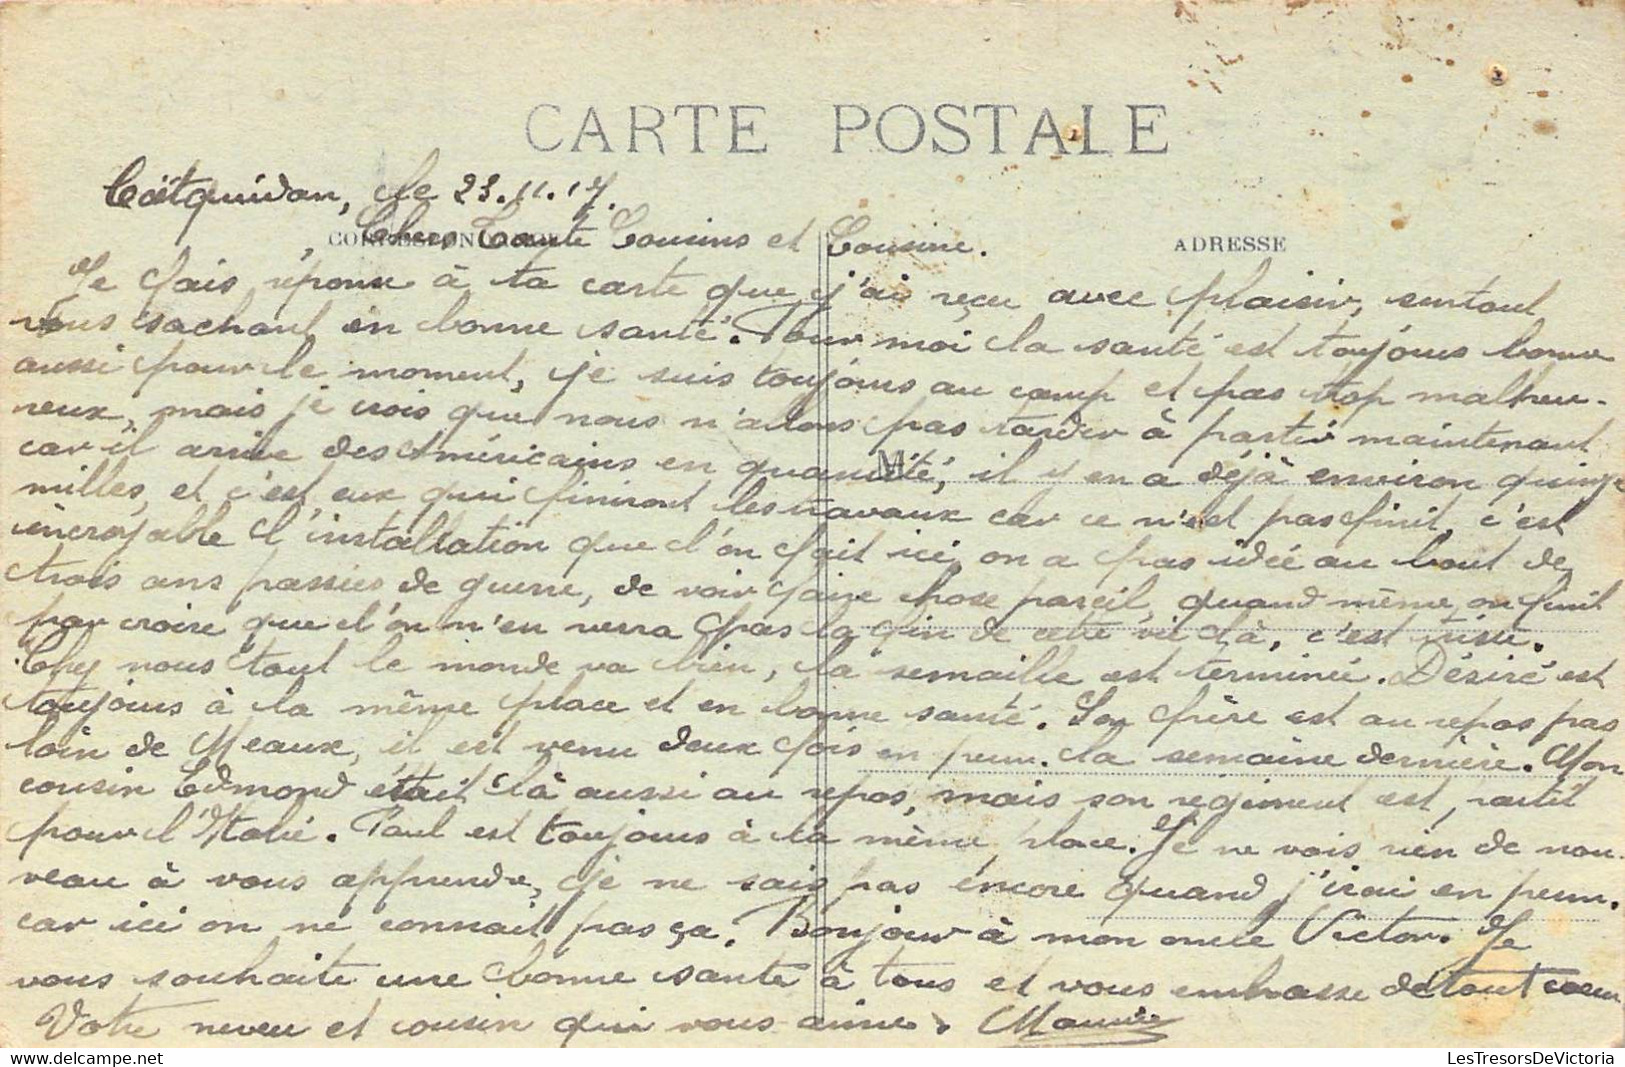 CARTE POSTALE
Coëtquidan, le 23.11.17.
CORRESPONDANCE
Chers Tante Cousins et Cousine.
ADRESSE
Je fais réponse à ta carte que j'ai reçu avec plaisir, surtout
vous sachant en bonne santé. Pour moi la santé est toujours bonne
aussi pour le moment, je suis toujours au camp et pas trop malheu-
reux, mais je crois que nous n'allons pas tarder à partir maintenant
car il arrive des Américains en quantité, il y en a déjà environ quinze
M
milles, et c'est eux qui finiront les travaux car ce n'est pas finit, c'est
incroyable l'installation que l'on fait ici, on a pas idée au bout de
trois ans passées de guerre, de voir faire chose pareil, quand même on finit
par croire que l'on n'en verra pas la fin de cette vie là, c'est triste.
Chez nous tout le monde va bien, la semaille est terminée. Désiré est
toujours à la même place et en bonne santé. Son frère est au repos pas
loin de Meaux, il est venu deux fois en perm. la semaine dernière. Mon
cousin Edmond était là aussi au repos, mais son régiment est partit
pour l'Italie. Paul est toujours à la même place. Je ne vois rien de nou-
veau à vous apprendre, je ne sais pas encore quand j'irai en perm.
car ici on ne connait pas ça. Bonjour à mon oncle Victor. Je
vous souhaite une bonne santé à tous et vous embrasse de tout coeur
Votre neveu et cousin qui vous aime. Maurice
LesTresorsDeVictoria